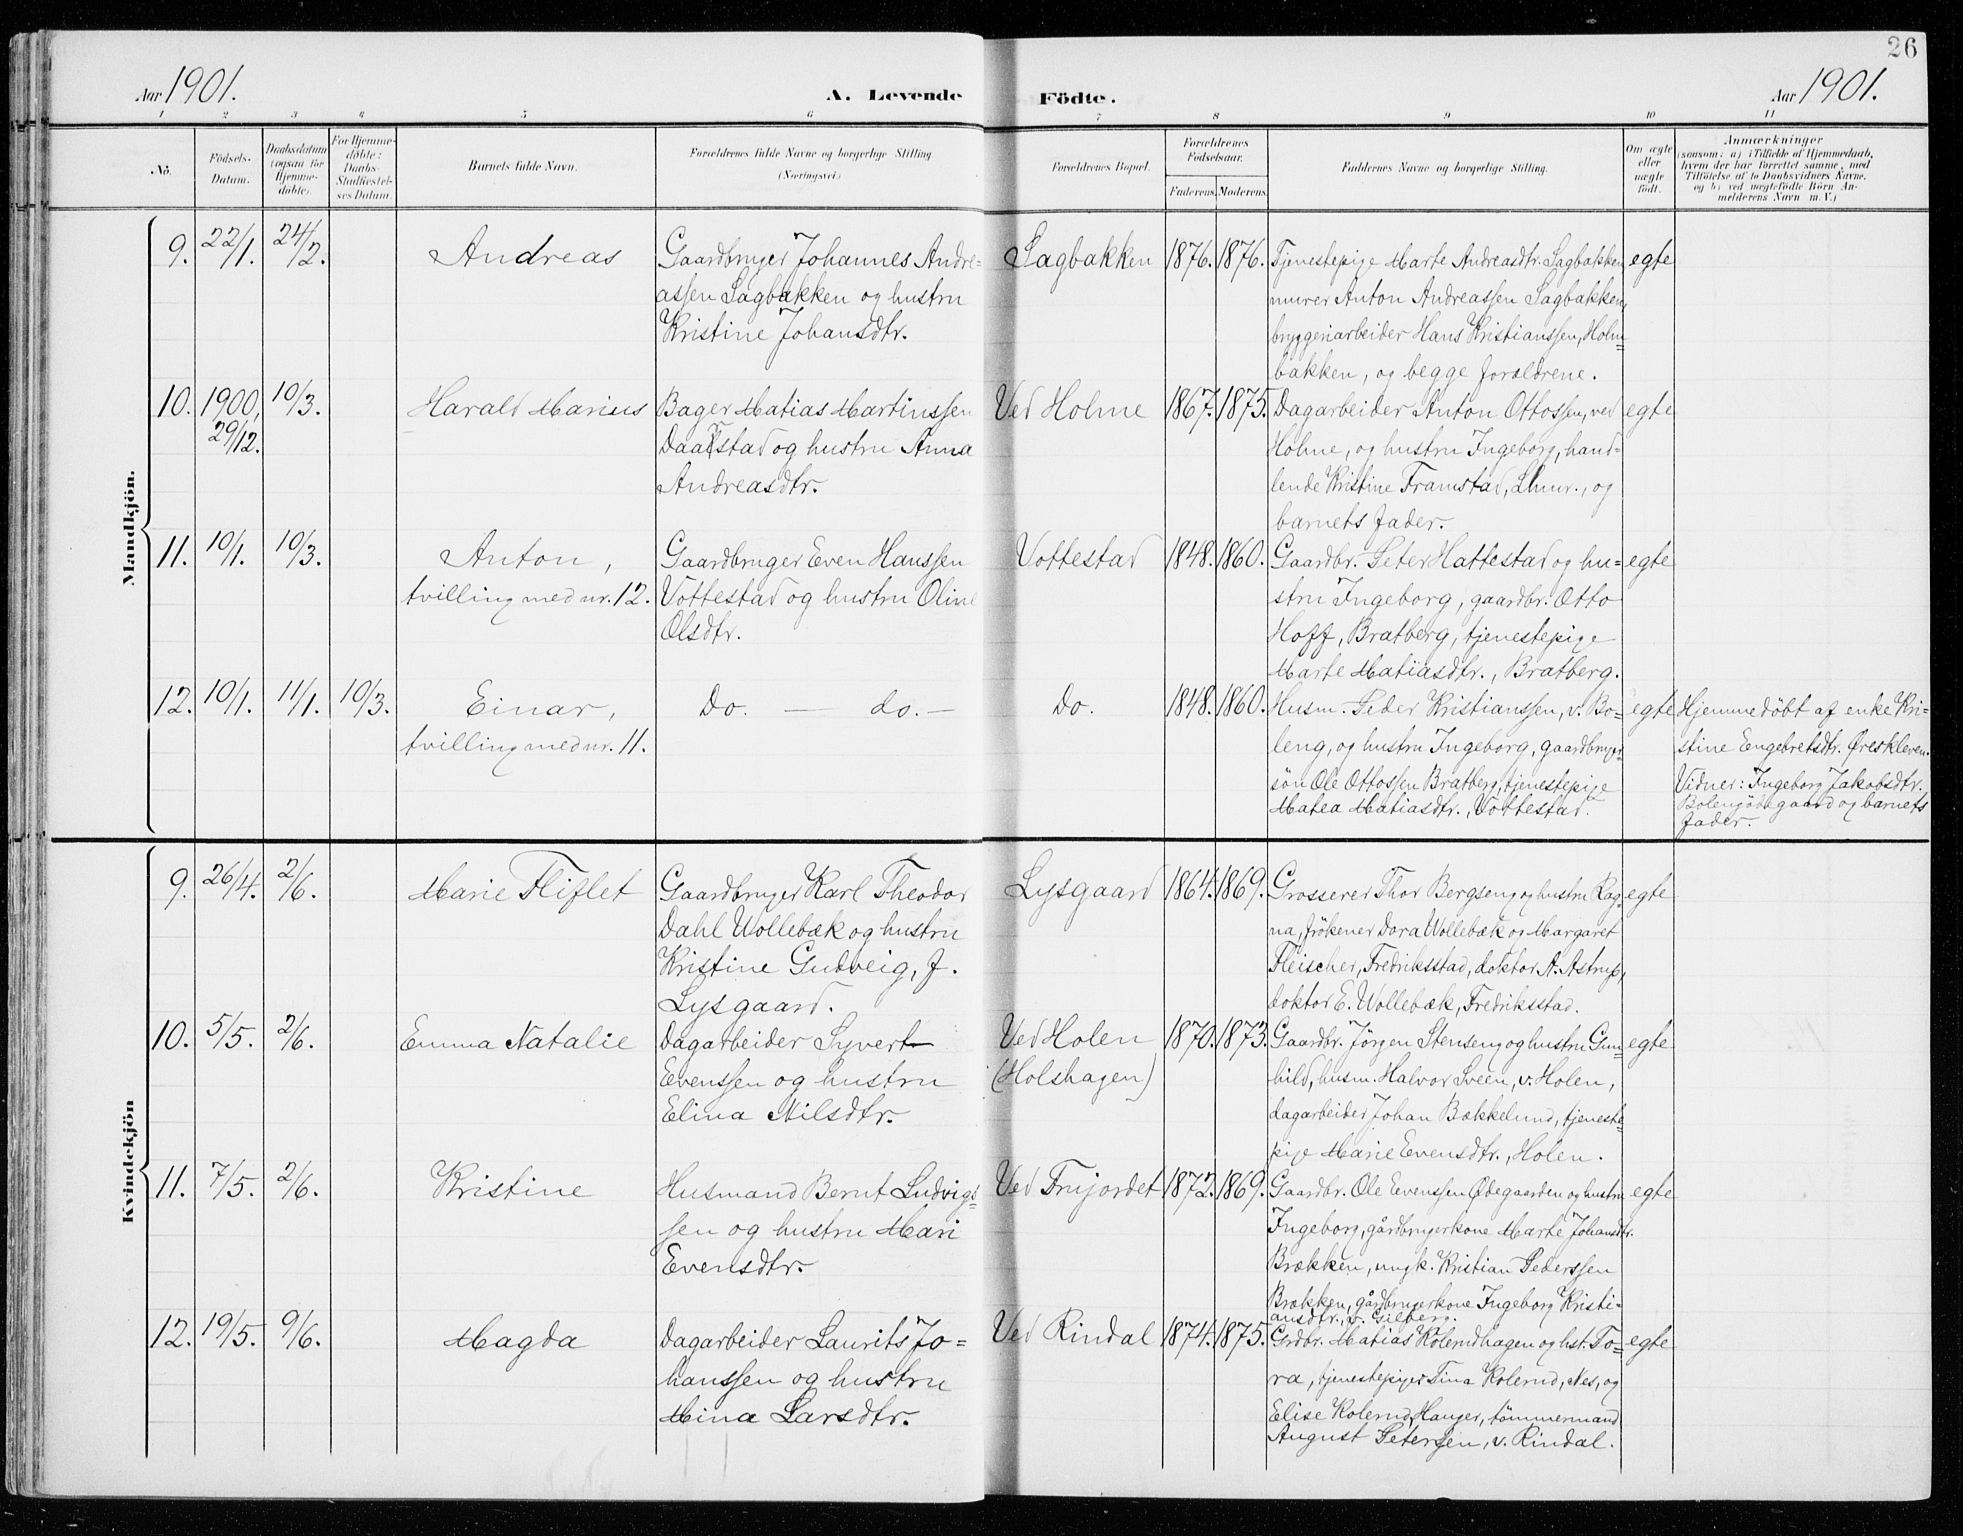 26
Aar 1901.
A. Levende Födte.
Aar 1901.
1 2 3 4 5 6 7 8 9 10 11
No.
Födsels-Datum.
Daabsdatum (ogsaa for Hjemmedöbte).
For Hjemmedöbte: Daabs-Stadfæstelses Datum.
Barnets fulde Navn.
Forældrenes fulde Navne og borgerlige Stilling
(Næringsvei)
Forældrenes Bopæl.
Forældrenes Födselsaar.
Faderens. Moderens.
Faddernes Navne og borgerlige Stilling.
Om ægte eller uægte födt.
Anmærkninger
(saasom: a) i Tilfælde af Hjemmedaab,
hvem der har forrettet samme, med
Tilföielse af to Daabsvidners Navne,
og b) ved uægtefödte Börn An-
melderens Navn m. V.)
Mandkjön.
9. 22/1. 24/2. Andreas
Gaardbruger Johannes Andre-
assen Sagbakken og hustru
Kristine Johansdtr.
Sagbakken 1876. 1876.
Tjenestepige Marte Andreasdtr. Sagbakken
murer Anton Andreassen Sagbakken,
bryggeriarbeider Hans Kristianssen, Holm=
bakken, og begge forældrene.
egte
10. 1900, 29/12. 10/3. Harald Marius
Bager Matias Martinssen
Daalstad og hustru Anna
Andreasdtr.
Ved Holme 1867. 1875.
Dagarbeider Anton Ottossen, ved
Holme, og hustru Ingeborg, hand=
lende Kristine Framstad, Lhmr., og
barnets fader.
egte
11. 10/1. 10/3. Anton,
tvilling med nr. 12.
Gaardbruger Even Hanssen
Vottestad og hustru Oline
Olsdtr.
Vottestad 1848. 1860.
Gaardbr. Peter Hattestad og hu=
stru Ingeborg, gaardbr. Otto
Hoff, Bratberg, tjenestepige
Marte Matiasdtr., Bratberg.
egte
12. 10/1. 11/1. 10/3. Einar,
tvilling med nr. 11.
Do. — do. —
Do. 1848. 1860.
Husm. Peder Kristianssen, v. Bo-
leng, og hustru Ingeborg, gaardbruger=
søn Ole Ottossen Bratberg, tjenestepige
Matea Matiasdtr., Vottestad.
egte
Hjemmedöbt af enke Kri-
stine Engebretsdtr. Øreskleven.
Vidner: Ingeborg Jakobsdtr.
og barnets
fader.
Kvindekjön
9. 26/4. 2/6. Marie Fliflet
Gaardbruger Karl Theodor
Dahl Wollebæk og hustru
Kristine Gudveig, f.
Lysgaard.
Lysgaard 1864. 1869.
Grosserer Thor Bergseng og hustru Rag-
na, frökener Dora Wollebæk og Margaret
Fleischer, Fredriksstad, doktor A. Astrup,
doktor E. Wollebæk, Fredriksstad.
egte
10. 5/5. 2/6. Emma Natalie
Dagarbeider Syvert
Evenssen og hustru
Elina Nilsdtr.
Ved Holen
(Holshagen)
1870. 1873.
Gaardbr. Jørgen Stenseng og hustru Gun-
hild, husm. Halvor Sveen, v. Holen,
dagarbeider Johan Bækkelund, tjeneste=
pige Marie Evensdtr., Holen.
egte
11. 7/5. 2/6. Kristine
Husmand Bernt Ludvigs=
sen og hustru Mari
Evensdtr.
Ved Frijordet 1872. 1869.
Gaardbr. Ole Evenssen Ødegaarden og hustru
Ingeborg, gårdbrugerkone Marte Johansdtr.
Brækken, ungk. Kristian Pederssen
Brækken, gårdbrugerkone Ingeborg Kristi-
ansdtr., v. Gilberg.
egte
12. 19/5. 9/6. Magda
Dagarbeider Laurits Jo=
hanssen og hustru
Mina Larsdtr.
Ved Rindal 1874. 1875.
Grdbr. Matias Kolerudhagen og hst. To=
ra, tjenestepiger Tina Kolerud, Nes, og
Elise Kolerud, Hauger, tömmermand
August Petersen, v. Rindal.
egte